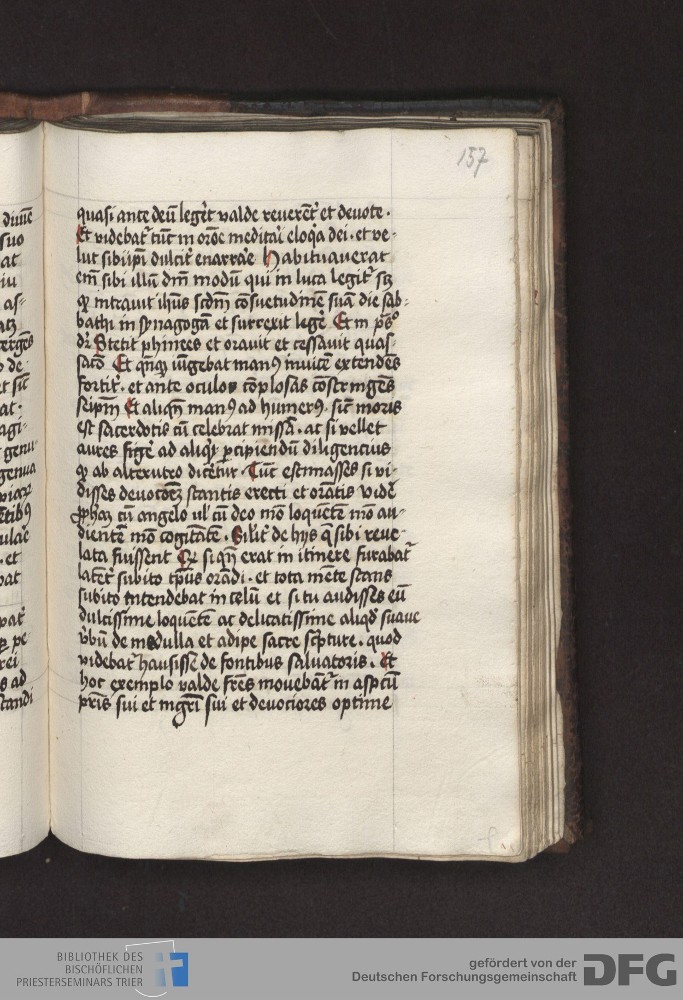 157
quasi ante deū leger̄t valde reuerent̄ et deuote ·
Et videbat᷑ tūc in orōe meditari eloq̄a dei · et ve-
lut sibiipsi dulcit᷑ enarrare Habituauerat
em̄ sibi illū dm̄ modū qui in luca legit᷑ sz
qꝫ intrauit ihūs scdm̄ cōsuetudinē suā die sab-
bathi in synagogā et surrexit legē Et in ps̄o
dr̄ Stetit phinees et orauit et cessauit quas-
sacō Et qn̄qꝫ iūgebat manꝰ inuicē extendēs
fortit᷑ · et ante oculos cōplosas cōstringēs
seipm̄ Et aliqn̄ manꝰ ad humerꝰ · sic̄ moris
est sacerdotis cū celebrat missā · ac si vellet
aures figē ad aliqꝫ ꝑcipiendū diligencius
qꝫ ab alterutro dicēt᷑ · Tūc estimasses si vi-
disses deuotōeꝫ stantis erecti et orātis vidē
ꝓphaꝫ cū angelo ul̄ cū deo mō loquētē mō au-
dientē mō cogitātē · Silit᷑ de hijs q̄ sibi reue-
lata fuissent Et si qn̄ erat in itinere furabat᷑
latent᷑ subito tp̄us orādi · et tota mēte stans
subito intendebat in celū et si tu audisses eū
dulcissime loquētē ac delicatissime aliqd̄ suaue
v̄bū de medulla et adipe sacre sc̄pture · quod
videbat᷑ hausissē de fontibus saluatoris · Et
hoc exemplo valde fr̄es mouebāt᷑ in asp̄cū
pr̄is sui et mgr̄i sui et deuociores optime
BIBLIOTHEK DES
BISCHÖFLICHEN
PRIESTERSEMINARS TRIER
gefördert von der
Deutschen Forschungsgemeinschaft
DFG